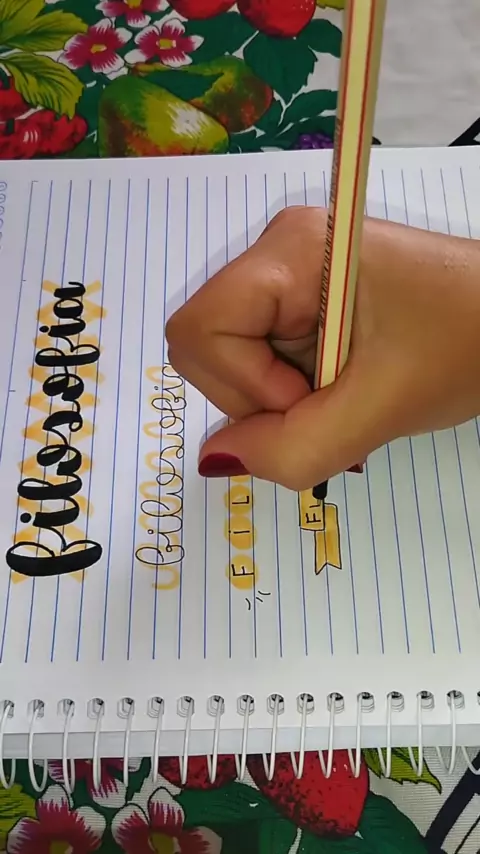 filosofia
filosofia
FIL
FL